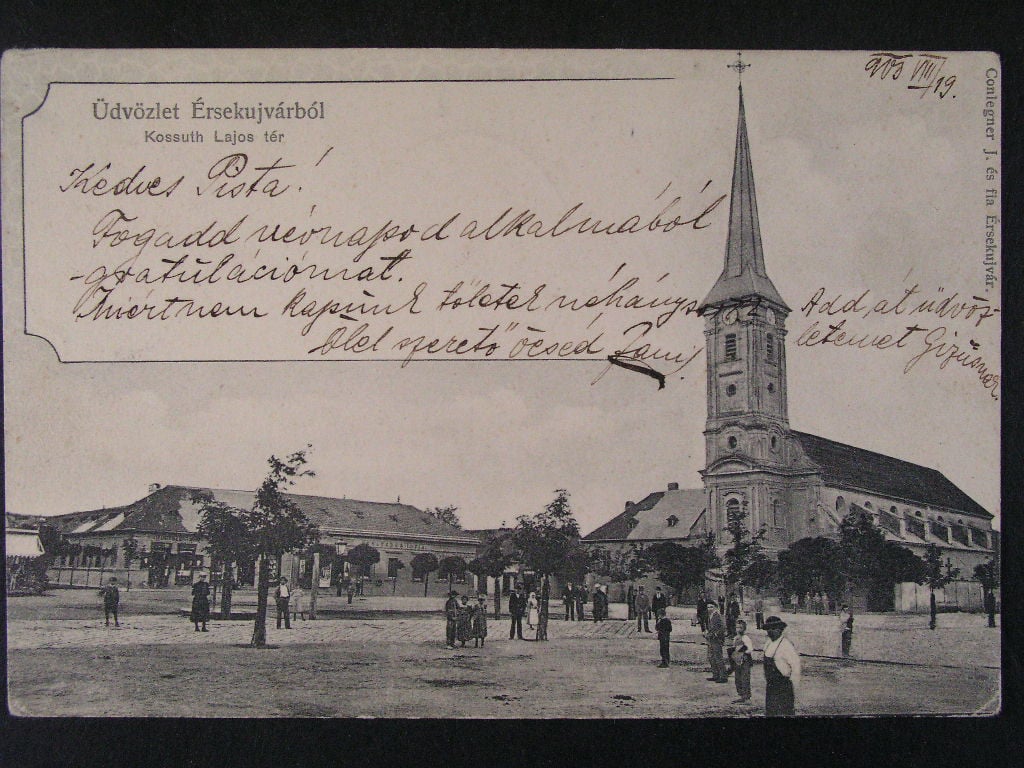 Üdvözlet Érsekujvárból
Kossuth Lajos tér
903 VIII/19.
Conlegner J. és fia Érsekujvár.
Kedves Pista!
Fogadd névnapod alkalmából
gratulációmat.
Miért nem kapunk tőletek néhány
Ölel szerető öcséd Jani
Add át üdvöz-
letemet